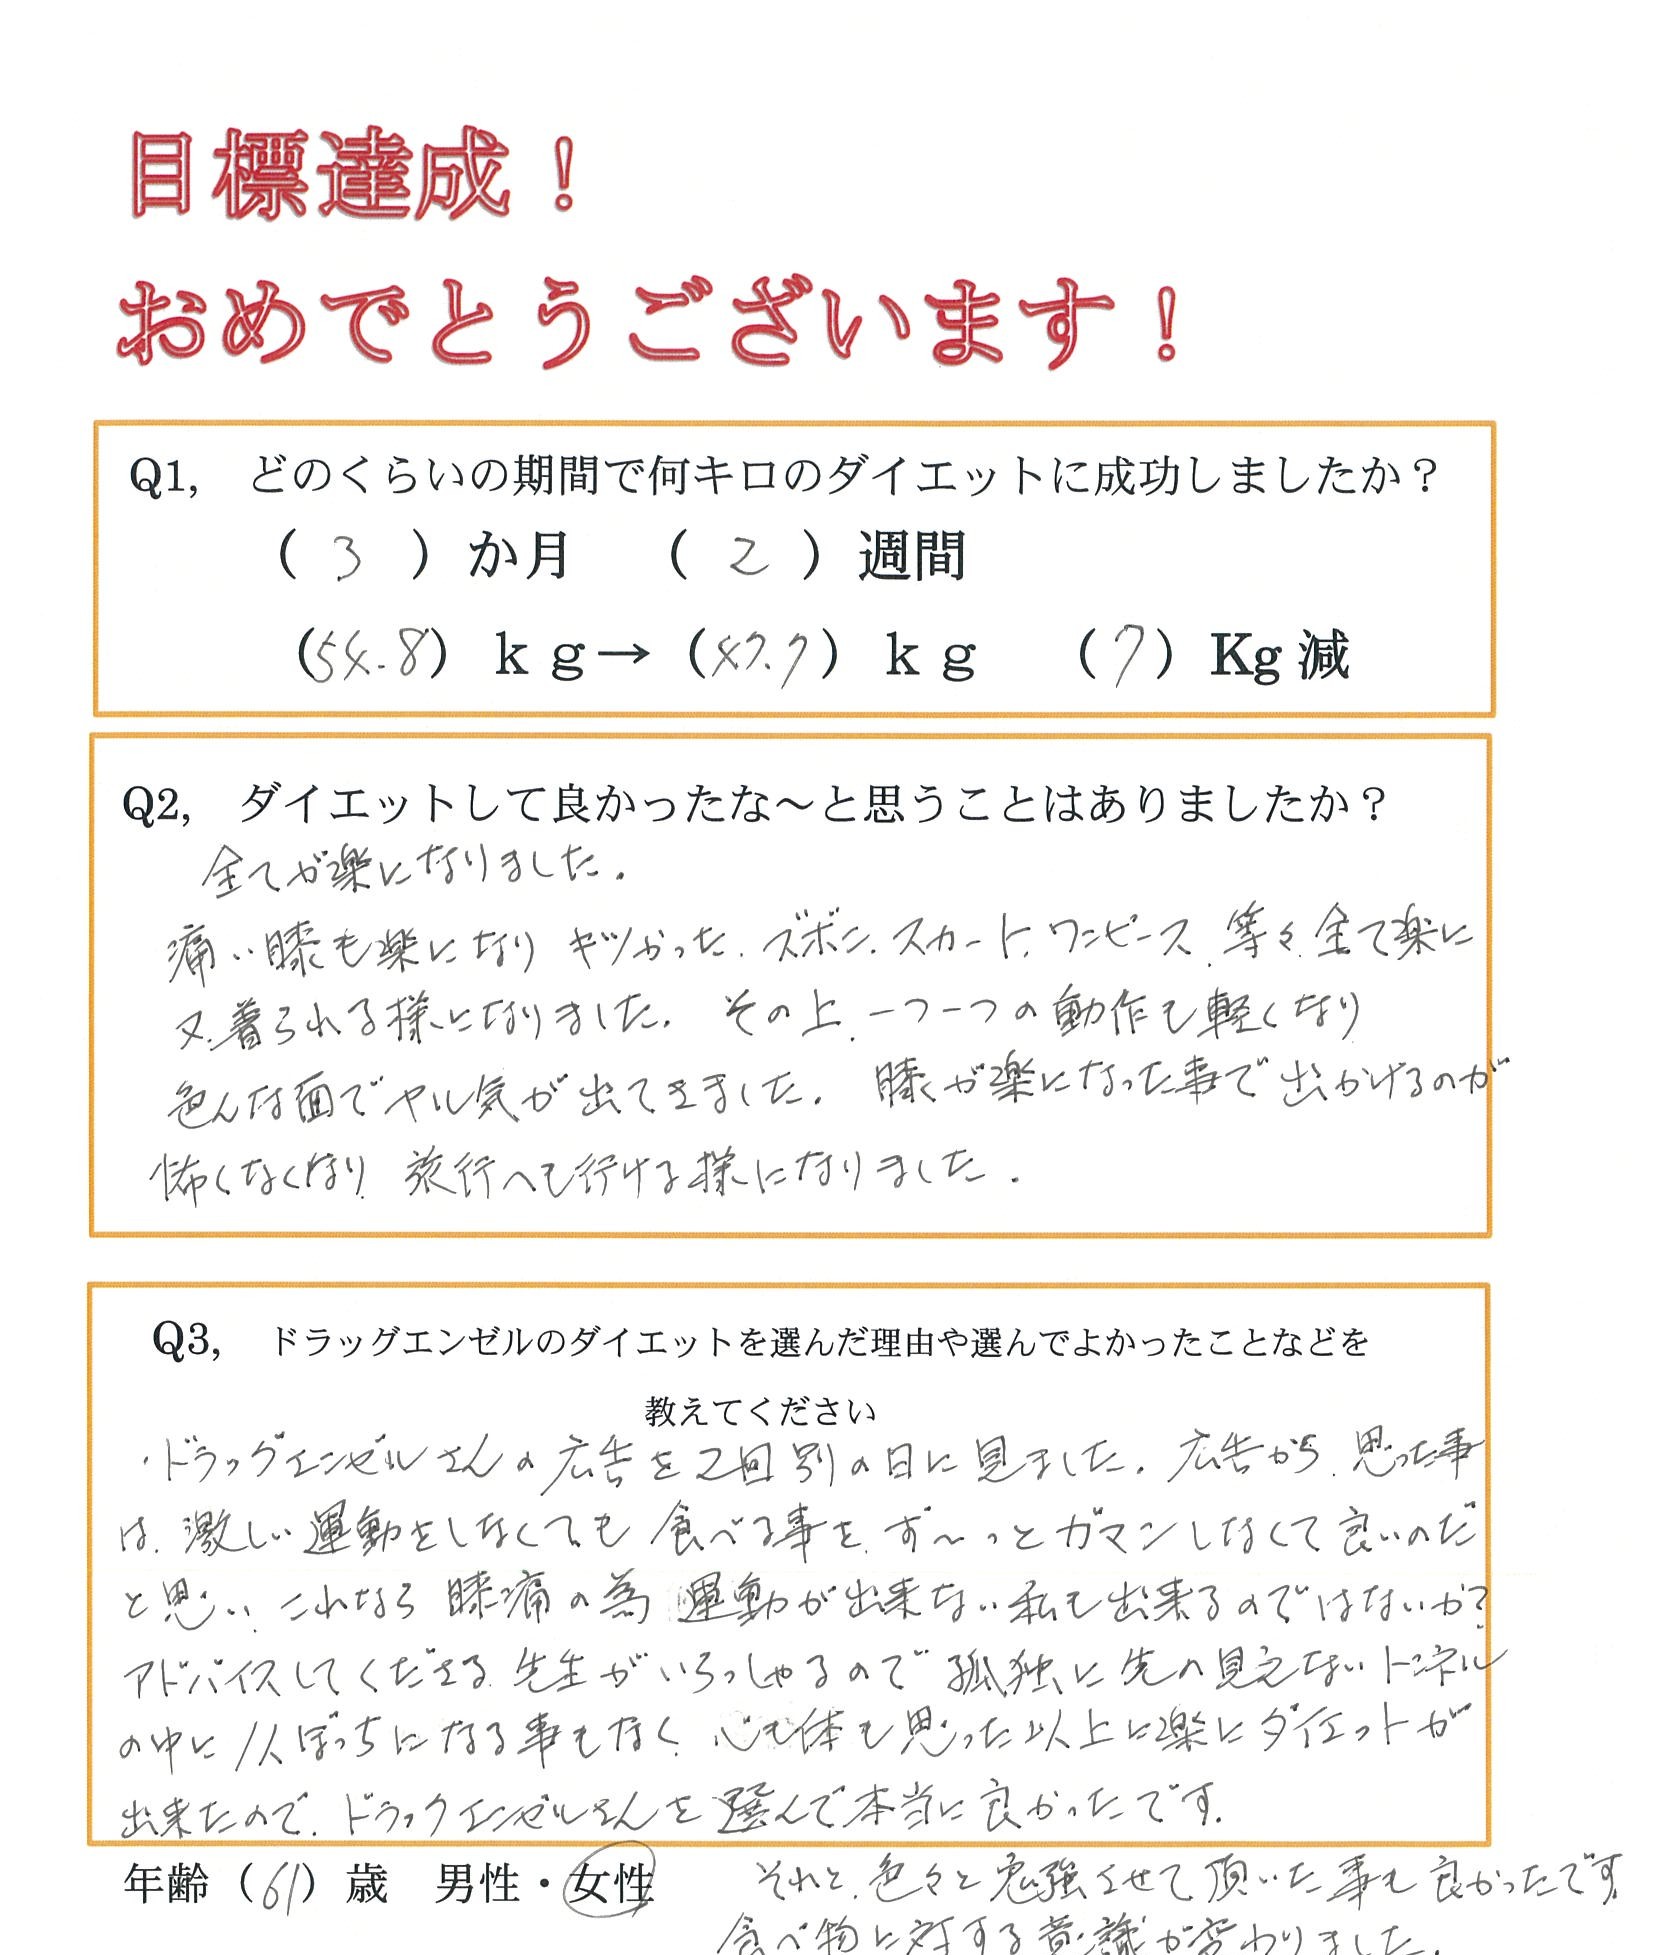 目標達成！
おめでとうございます！
Q1,　どのくらいの期間で何キロのダイエットに成功しましたか？
（ 3 ）か月　（ 2 ）週間
（54.8）ｋｇ→（47.7）ｋｇ　（7）Kg減
Q2,　ダイエットして良かったな～と思うことはありましたか？
全てが楽になりました.
痛い膝も楽になり キツかった. ズボン. スカート. ワンピース. 等々. 全て楽に
又.着られる様になりました. その上. 一つ一つの動作も軽くなり
色んな面でヤル気が出てきました. 膝が楽になった事で出かけるのが
怖くなくなり 旅行へも行ける様になりました.
Q3,　ドラッグエンゼルのダイエットを選んだ理由や選んでよかったことなどを
教えてください
・ドラッグエンゼルさんの広告を2回別の日に見ました. 広告から. 思った事
は. 激しい運動をしなくても 食べる事を. ず〜っとガマンしなくて良いのだ
と思い. これなら 膝痛の為 運動が出来ない私も出来るのではないか?
アドバイスしてくださる 先生がいらっしゃるので 孤独に先の見えないトンネル
の中に 1人ぼっちになる事もなく. 心も体も思った以上に楽にダイエットが
出来たので. ドラックエンゼルさんを選んで本当に良かったです.
年齢（61）歳　男性・女性
それと. 色々と勉強させて頂いた事も良かったです.
食べ物に対する意識が変わりました.